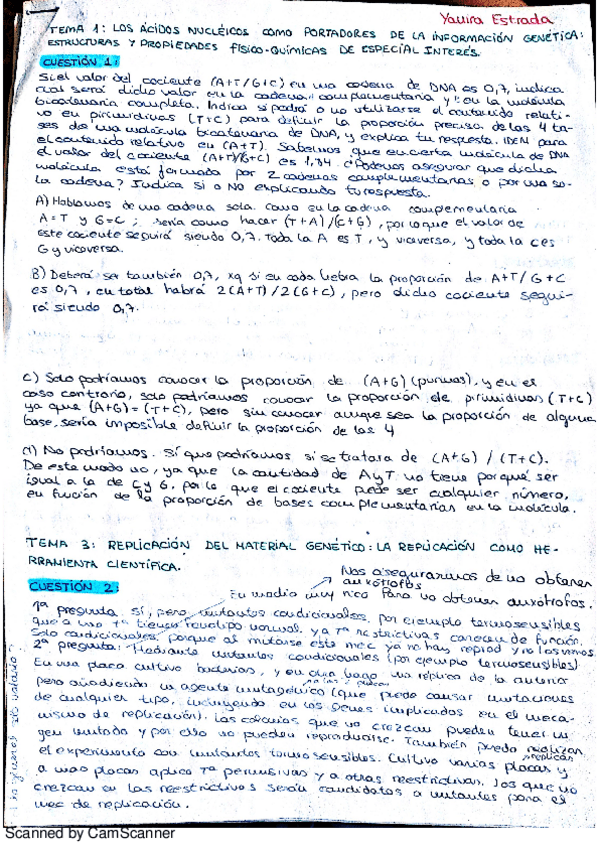 Yaura Estrada
TEMA 1: LOS ÁCIDOS NUCLÉICOS COMO PORTADORES DE LA INFORMACIÓN GENÉTICA:
ESTRUCTURAS Y PROPIEDADES FÍSICO-QUÍMICAS DE ESPECIAL INTERÉS.
CUESTIÓN 1:
Si el valor del cociente (A+T/G+C) en una cadena de DNA es 0,7, indica
cual será dicho valor en la cadena complementaria y en la molécula
bicatenaria completa. Indica si podrá o no utilizarse el contenido relati-
vo en pirimidinas (T+C) para definir la proporción precisa de las 4 ba-
ses de una molécula bicatenaria de DNA, y explica tu respuesta. IDEM para
el contenido relativo en (A+T). Sabemos que en cierta molécula de DNA
el valor del cociente (A+T)/(G+C) es 1,34. ¿Podemos asegurar que dicha
molécula está formada por 2 cadenas complementarias o por una so-
la cadena? Indica si o NO explicando tu respuesta.
A) Hablamos de una cadena sola. Como en la cadena complementaria
A=T y G=C; sería como hacer (T+A)/(C+G), por lo que el valor de
este cociente seguirá siendo 0,7. Toda la A es T, y viceversa, y toda la C es
G y viceversa.
B) Deberá ser también 0,7, xq si en cada hebra la proporción de A+T/G+C
es 0,7, en total habrá 2(A+T)/2(G+C), pero dicho cociente segui-
rá siendo 0,7.
C) Solo podríamos conocer la proporción de (A+G) (purinas), y en el
caso contrario, solo podríamos conocer la proporción de pirimidinas (T+C)
ya que (A+G)=(T+C), pero sin conocer aunque sea la proporción de alguna
base, sería imposible definir la proporción de las 4
No podríamos. Sí que podríamos si se tratara de (A+G) / (T+C).
De este modo no, ya que la cantidad de A y T no tiene porqué ser
igual a la de C y G, por lo que el cociente puede ser cualquier número,
en función de la proporción de bases complementarias en la molécula.
TEMA 3: REPLICACIÓN DEL MATERIAL GENÉTICO: LA REPLICACIÓN COMO HE-
RRAMIENTA CIENTÍFICA.
Nos aseguraremos de no obtener
auxótrofos
CUESTIÓN 2:
En medio muy rico para no obtener auxótrofos.
1ª pregunta. Sí, pero mutantes condicionales, por ejemplo termosensibles
que a una Tª tienen fenotipo normal, y a Tª restrictivas carecen de función.
Solo condicionales, porque al mutarse este mec ya no hay reprod y no los vemos.
2ª pregunta: Mediante mutantes condicionales (por ejemplo termosensibles).
En una placa cultivo bacterias, y en otra hago una réplica de la anterior
pero añadiendo un agente mutagénico (que puede causar mutaciones
de cualquier tipo, incluyendo en los genes implicados en el meca-
nismo de replicación). Las colonias que no crezcan pueden tener un
gen mutado y por ello no pueden reproducirse. También puedo realizar
el experimento con mutantes termosensibles. Cultivo varias placas y
réplicas
a unas placas aplico Tª permisivas y a otras restrictivas. Los que no
crezcan en las restrictivas serán candidatos a mutantes para el
mec de replicación.
Scanned by CamScanner